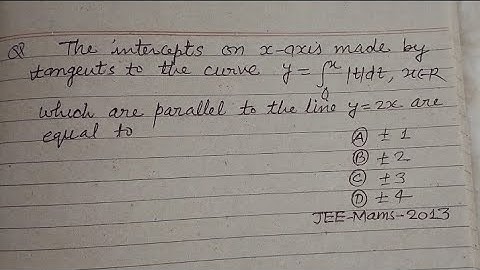 Q The intercepts on x-axis made by
tangents to the curve y = ∫₀ˣ |t|dt, x∈R
which are parallel to the line y=2x are
equal to
Ⓐ ± 1
Ⓑ ± 2
Ⓒ ± 3
Ⓓ ± 4
JEE-Mams-2013